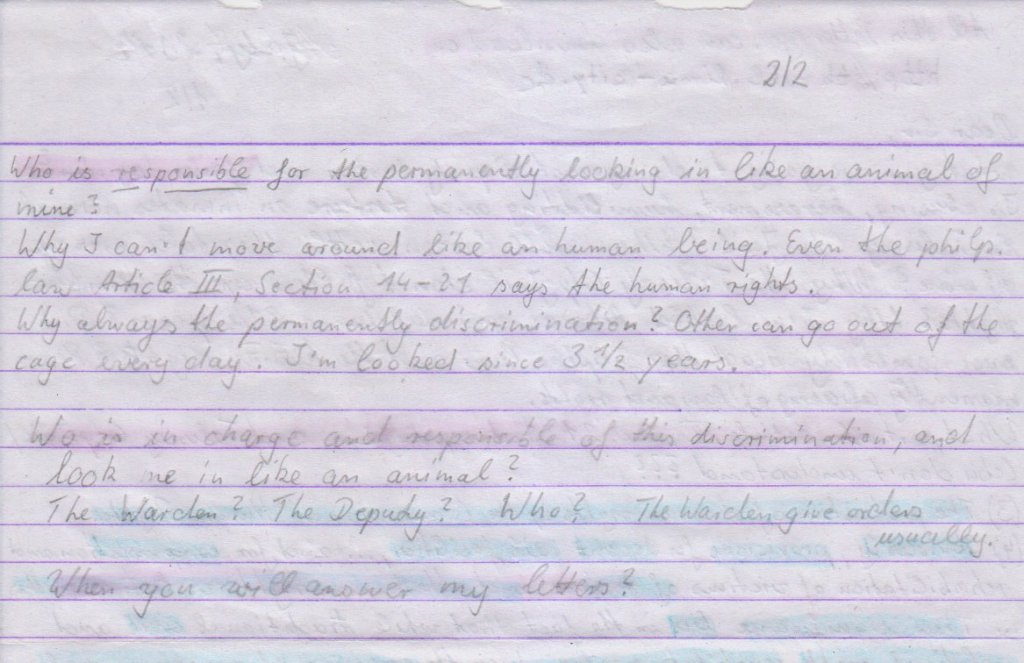 2/2
Who is responsible for the permanently looking in like an animal of
mine?
Why I can't move around like an human being. Even the philp.
law Article III, Section 14-21 says the human rights.
Why always the permanently discrimination? Other can go out of the
cage every day. I'm looked since 3 1/2 years.
Wo is in charge and responsible of this discrimination, and
look me in like an animal?
The Warden? The Deputy? Who? The Warden give orders
usually.
When you will answer my letters?